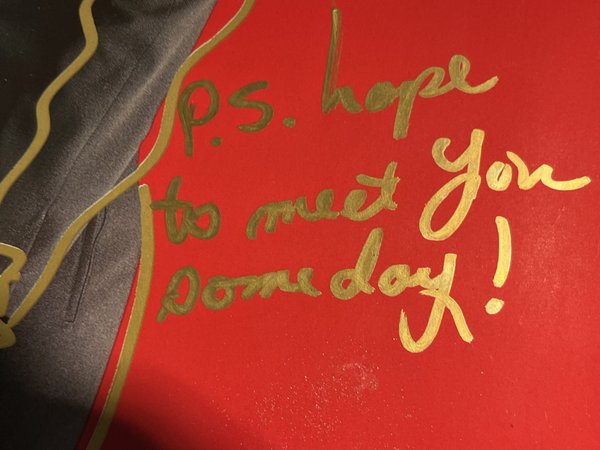 P.S. hope
to meet You
someday!